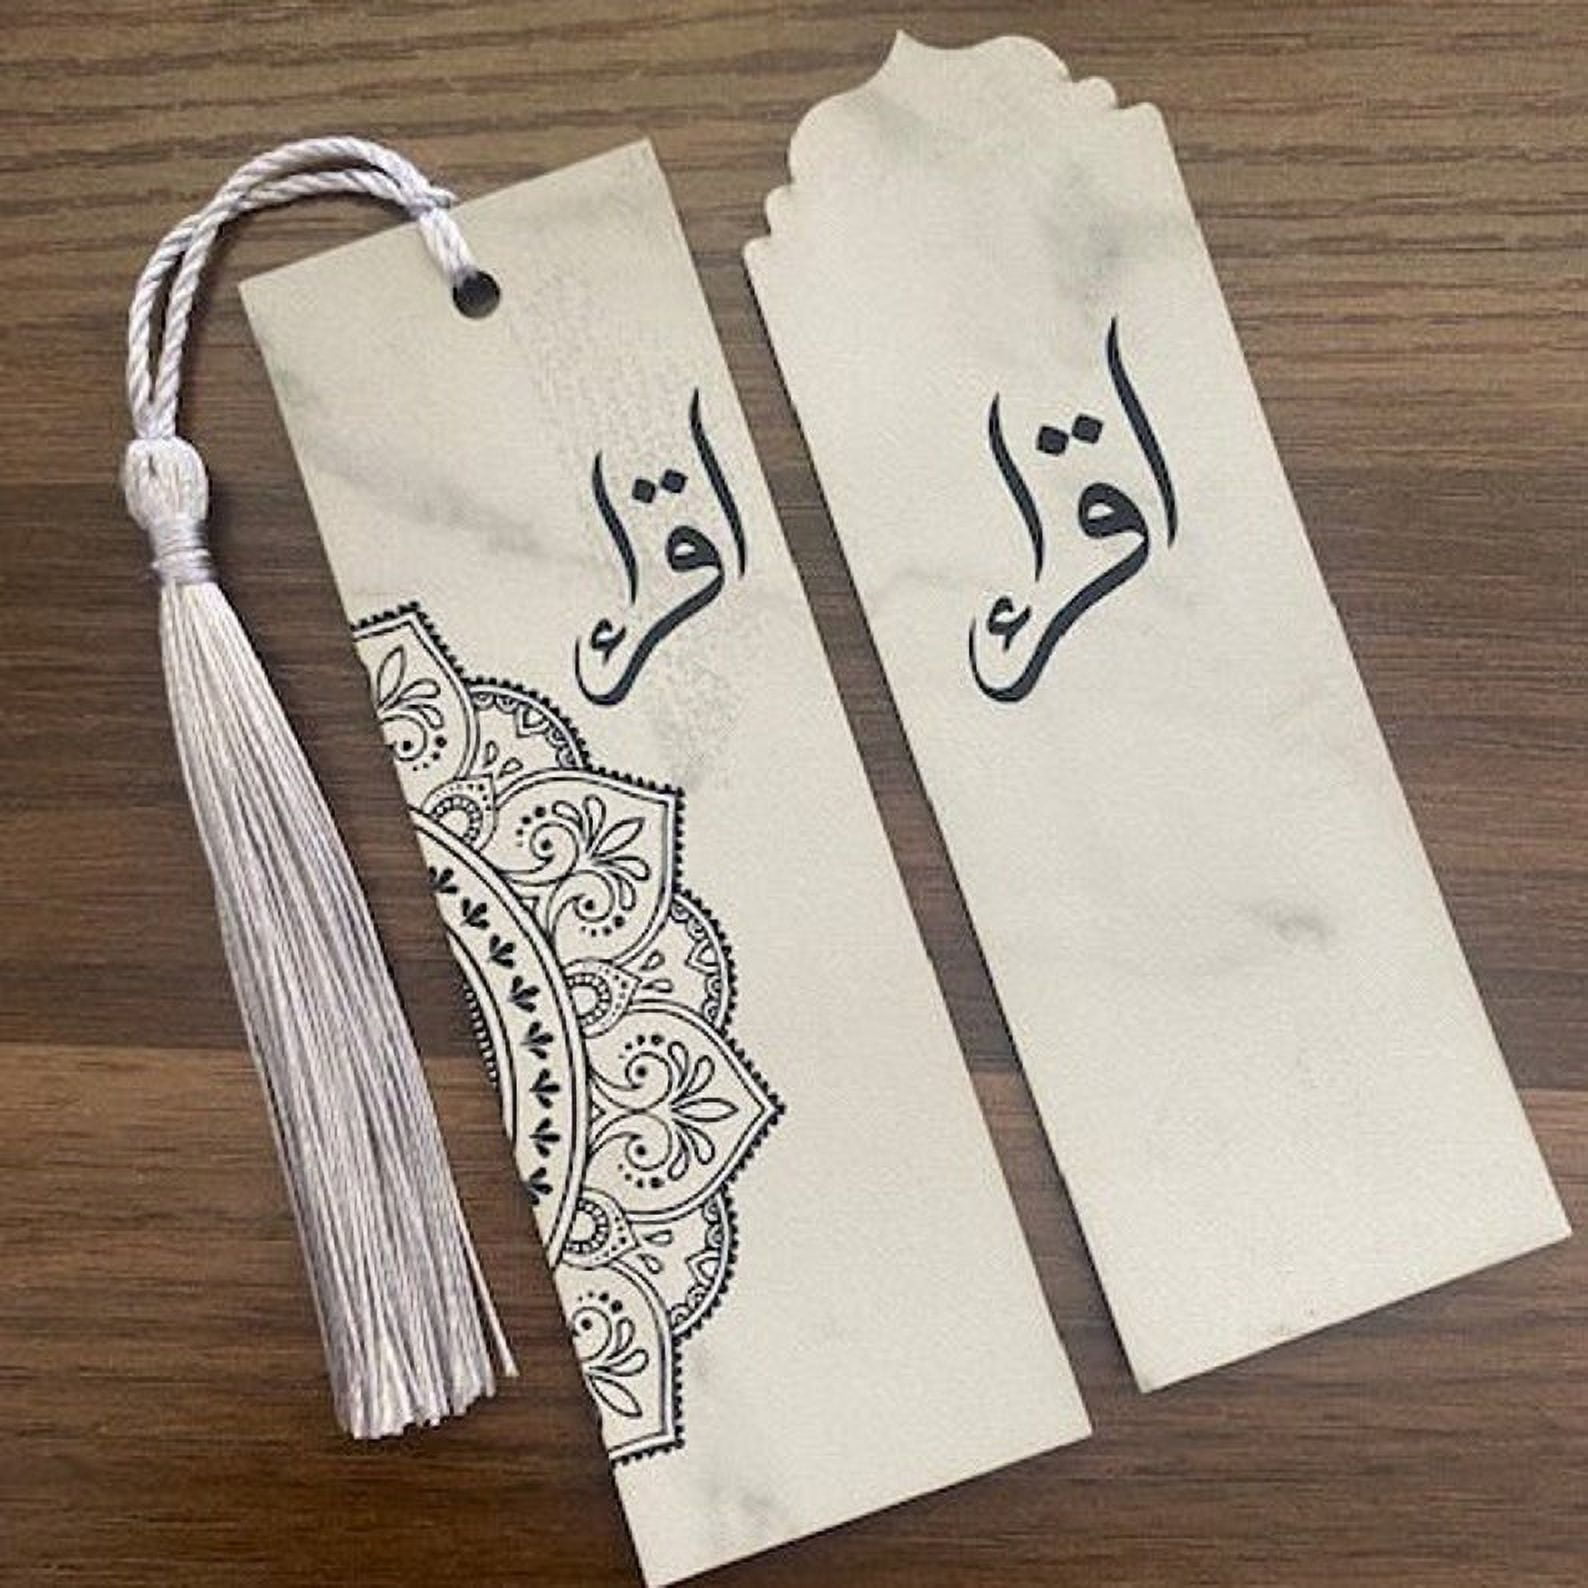 اقرأ
اقرأ